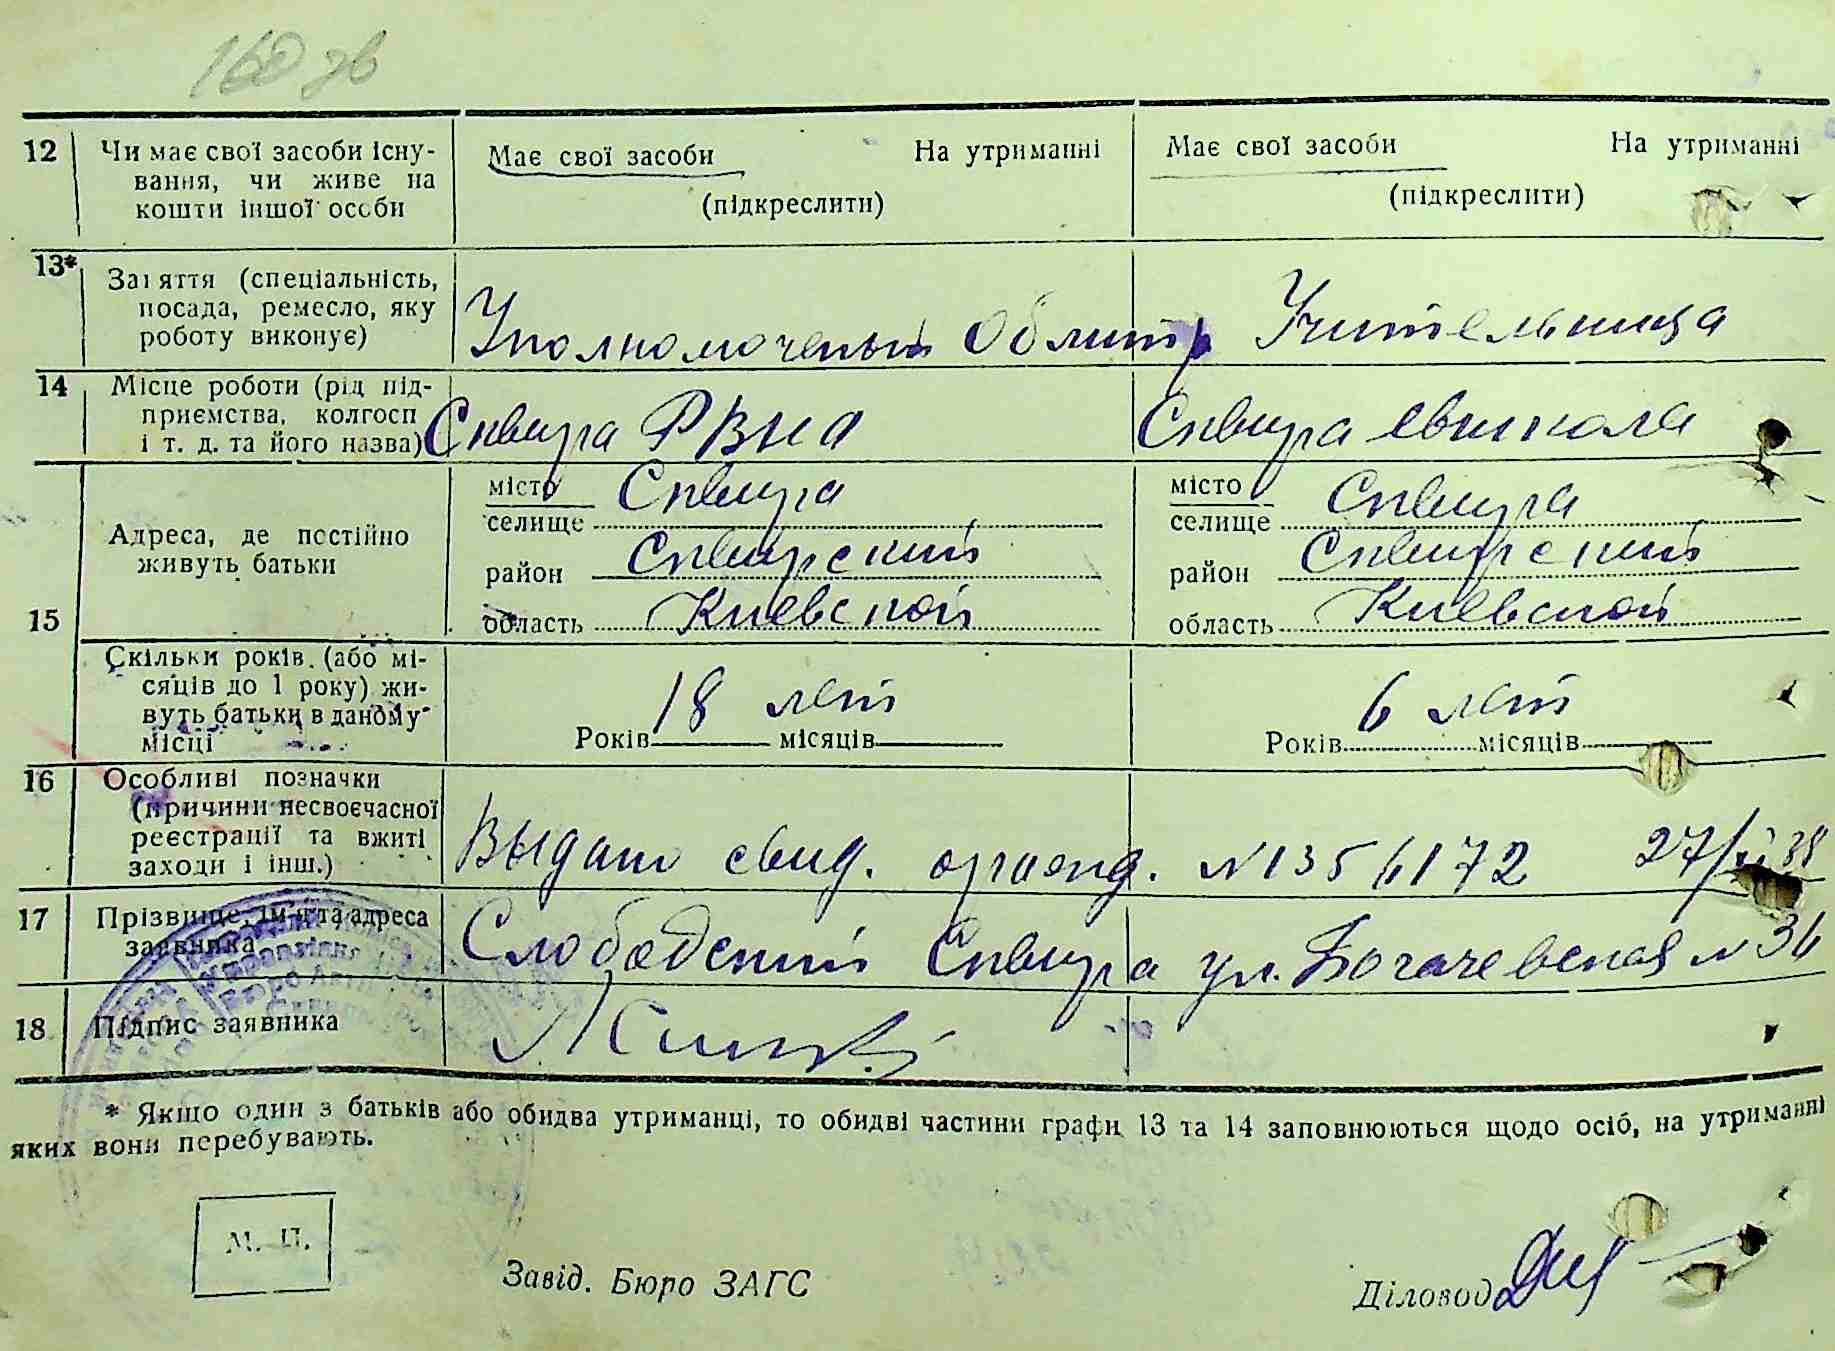 160 зв
12 Чи має свої засоби існу-
вання, чи живе на
кошти іншої особи
Має свої засоби На утриманні
(підкреслити)
Має свої засоби На утриманні
(підкреслити)
13* Заняття (спеціальність,
посада, ремесло, яку
роботу виконує)
Уполномоченый Обллит
Учительница
14 Місце роботи (рід під-
приємства, колгосп
і т. д. та його назва)
Сквира РВНО
Сквира школа
15 Адреса, де постійно
живуть батьки
місто Сквира
селище
район Сквирский
область Киевской
місто Сквира
селище
район Сквирский
область Киевской
Скільки років (або мі-
сяців до 1 року) жи-
вуть батьки в даному
місці
18 лет
Років місяців
6 лет
Років місяців
16 Особливі позначки
(причини несвоєчасної
реєстрації та вжиті
заходи і інш.)
Выдано свид. № 1356172 27/ 38
17 Прізвище, ім'я та адреса
заявника
Слободский Сквира ул. Богачевская № 36
18 Підпис заявника
* Якщо один з батьків або обидва утриманці, то обидві частини графи 13 та 14 заповнюються щодо осіб, на утриманні
яких вони перебувають.
М. П.
Завід. Бюро ЗАГС
Діловод